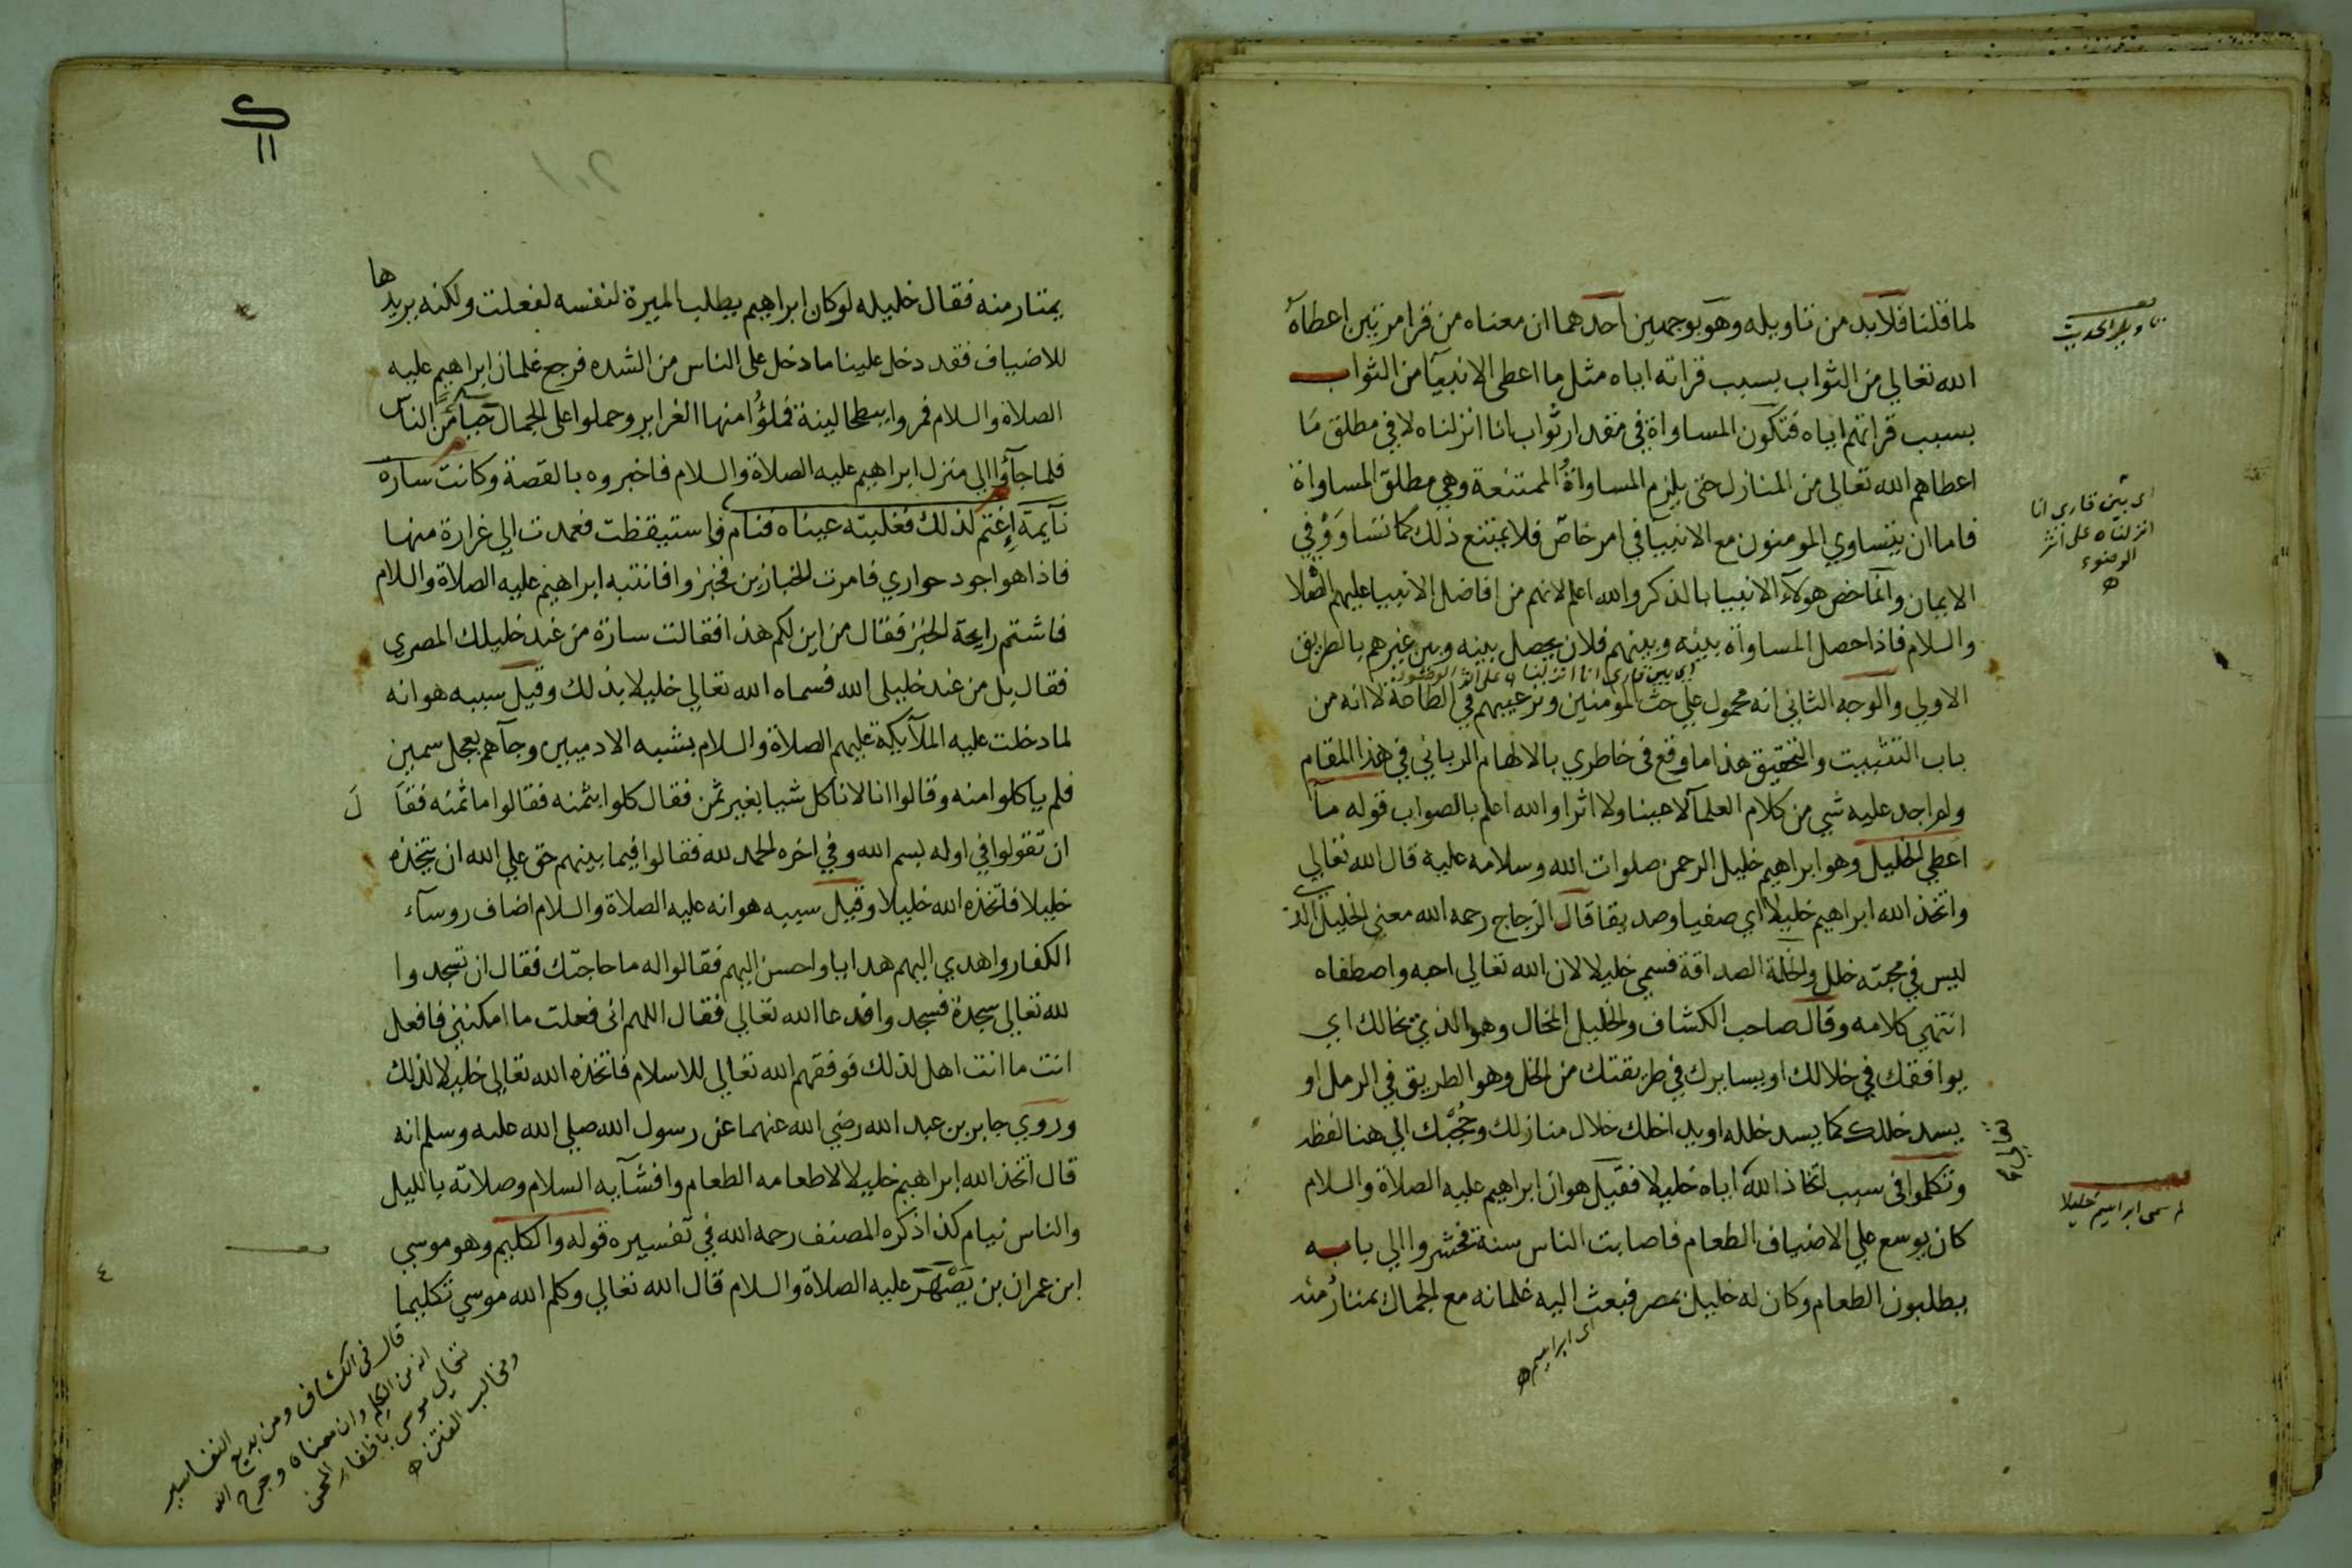 لما قلنا فلا بد من تاويله وهو بوجهين احدهما ان معناه من قرا مرتين اعطاه
الله تعالى من الثواب بسبب قراته اياه مثل ما اعطى الانبيآ من الثواب
بسبب قراتهم اياه فتكون المساواة في مقدار ثواب انا انزلناه لا في مطلق مَا
اعطاهم الله تعالى من المنازل حتى يلزم المساواةُ الممتنعة وهي مطلق المساواة
فاما ان يتساوي المومنون مع الانبيآ في امر خاصّ فلا يمتنع ذلك كما تسَاوَوْ في
الايمان وانما خص هولآء الانبيا بالذكر والله اعلم لانهم من افاضل الانبيا عليهم الصلاة
والسلام فاذا حصل المساواة بينه وبينهم فلان يحصل بينه وبين غيرهم بالطريق
اي بين قاري انا انزلناه على اثر الوضوء
الاولى والوجه الثاني انه محمول على حث المومنين وترغيبهم في الطاعة لا انه من
باب التثبيت والتحقيق هذا ما وقع في خاطري بالالهام الرباني في هذا المقام
ولم اجد عليه شي من كلام العلمآ لا عينا ولا اثرا والله اعلم بالصواب قوله مآ
اعطي الخليل وهو ابراهيم خليل الرحمن صلوات الله وسلامه عليه قال الله تعالى
واتخذ الله ابراهيم خليلا اي صفيا وصديقا قال الزجاج رحمه الله معنى الخليل الذي
ليس في محبته خلل والخلة الصداقة فسمي خليلا لان الله تعالى احبه واصطفاه
انتهي كلامه وقال صاحب الكشاف والخليل المخال وهو الذي يخالك اي
يوافقك في خلالك او يسايرك في طريقتك من الخل وهو الطريق في الرمل او
يسد خللك كما يسد خلله او يداخلك خلال منازلك وحُجُبك الى هنا لفظه
وتكلموا في سبب اتخاذ الله اياه خليلا فقيل هو ان ابراهيم عليه الصلاة والسلام
كان يوسع على الاضياف الطعام فاصابت الناس سنة فحشروا الى بابه
يطلبون الطعام وكان له خليل بمصر فبعث اليه غلمانه مع الجمال يمتار منه
اي ابراهيم
تاويل الحديث
اي بين قاري انا
انزلناه على اثر
الوضوء
لم سمى ابراهيم خليلا
يمتار منه فقال خليله لو كان ابراهيم يطلب الميرة لنفسه لفعلت ولكنه يريدها
للاضياف فقد دخل علينا ما دخل على الناس من الشده فرجع غلمان ابراهيم عليه
الصلاة والسلام فمروا ببطحا لينة فملؤُا منها الغراير وحملوا على الجمال حيآءً من الناس
فلما جآؤا الى منزل ابراهيم عليه الصلاة والسلام فاخبروه بالقصة وكانت سارة
نآيمة إغتم لذلك فغلبته عيناه فنام واستيقظت فعمدت الى غرارة منها
فاذا هو اجود حواري فامرت الخبازين فخبزوا فانتبه ابراهيم عليه الصلاة والسلام
فاشتم رايحة الخبز فقال من اين لكم هذا فقالت سارة من عند خليلك المصري
فقال بل من عند خليلى الله فسماه الله تعالى خليلا بذلك وقيل سببه هو انه
لما دخلت عليه الملآيكة عليهم الصلاة والسلام بشبه الادميين وجآهم بعجل سمين
فلم ياكلوا منه وقالوا انا لا ناكل شيا بغير ثمن فقال كلوا بثمنه فقالوا ما ثمنه فقال
ان تقولوا في اوله بسم الله وفي اخره الحمد لله فقالوا فيما بينهم حق على الله ان يتخذه
خليلا فاتخذه الله خليلا وقيل سببه هو انه عليه الصلاة والسلام اضاف روسآء
الكفار واهدي اليهم هدايا واحسن اليهم فقالوا له ما حاجتك فقال ان تسجدوا
لله تعالى سجدة فسجدوا فدعا الله تعالى فقال اللهم انى فعلت ما امكنني فافعل
انت ما انت اهل لذلك فوفقهم الله تعالى للاسلام فاتخذه الله تعالى خليلا لذلك
وروي جابر بن عبد الله رضي الله عنهما عن رسول الله صلى الله عليه وسلم انه
قال اتخذ الله ابراهيم خليلا لاطعامه الطعام وافشآيه السلام وصلاته بالليل
والناس نيام كذا ذكره المصنف رحمه الله في تفسيره قوله والكليم وهو موسي
ابن عمران بن يَصْهَر عليه الصلاة والسلام قال الله تعالى وكلم الله موسي تكليما
قال في الكشاف ومن بدع التفاسير
انه من الكلم وان معناه وجرح الله
تعالى موسى باظفار المحن
ومخالب الفتن
٤
١١